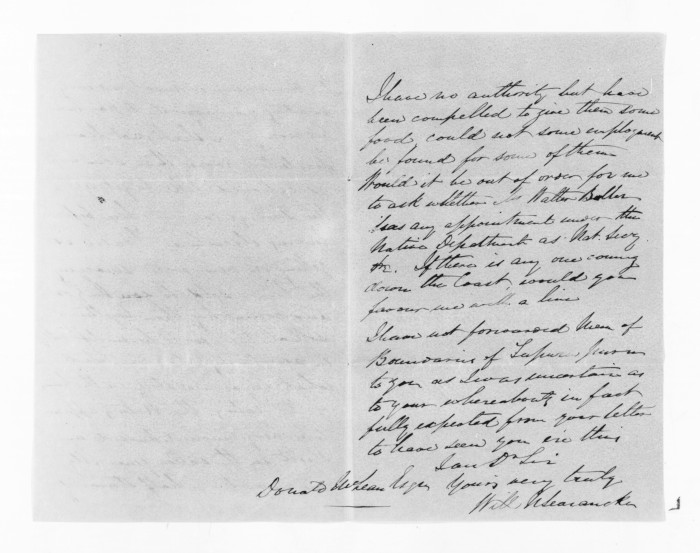 I have no authority but have
been compelled to give them some
food, could not some employment
be found for some of them
Would it be out of order for me
to ask whether Mr Walter Buller
has any appointment under the
Native Department as Nat. Secy.
&c. If there is any one coming
down the Coast, would you
favour me with a line
I have not forwarded Mem of
Boundaries of
to you as I was uncertain as
to your whereabouts, in fact
fully expected from your letter
to have seen you in this
I am Dr Sir
Yours very truly
Donald McLean Esqr
Will N Searancke